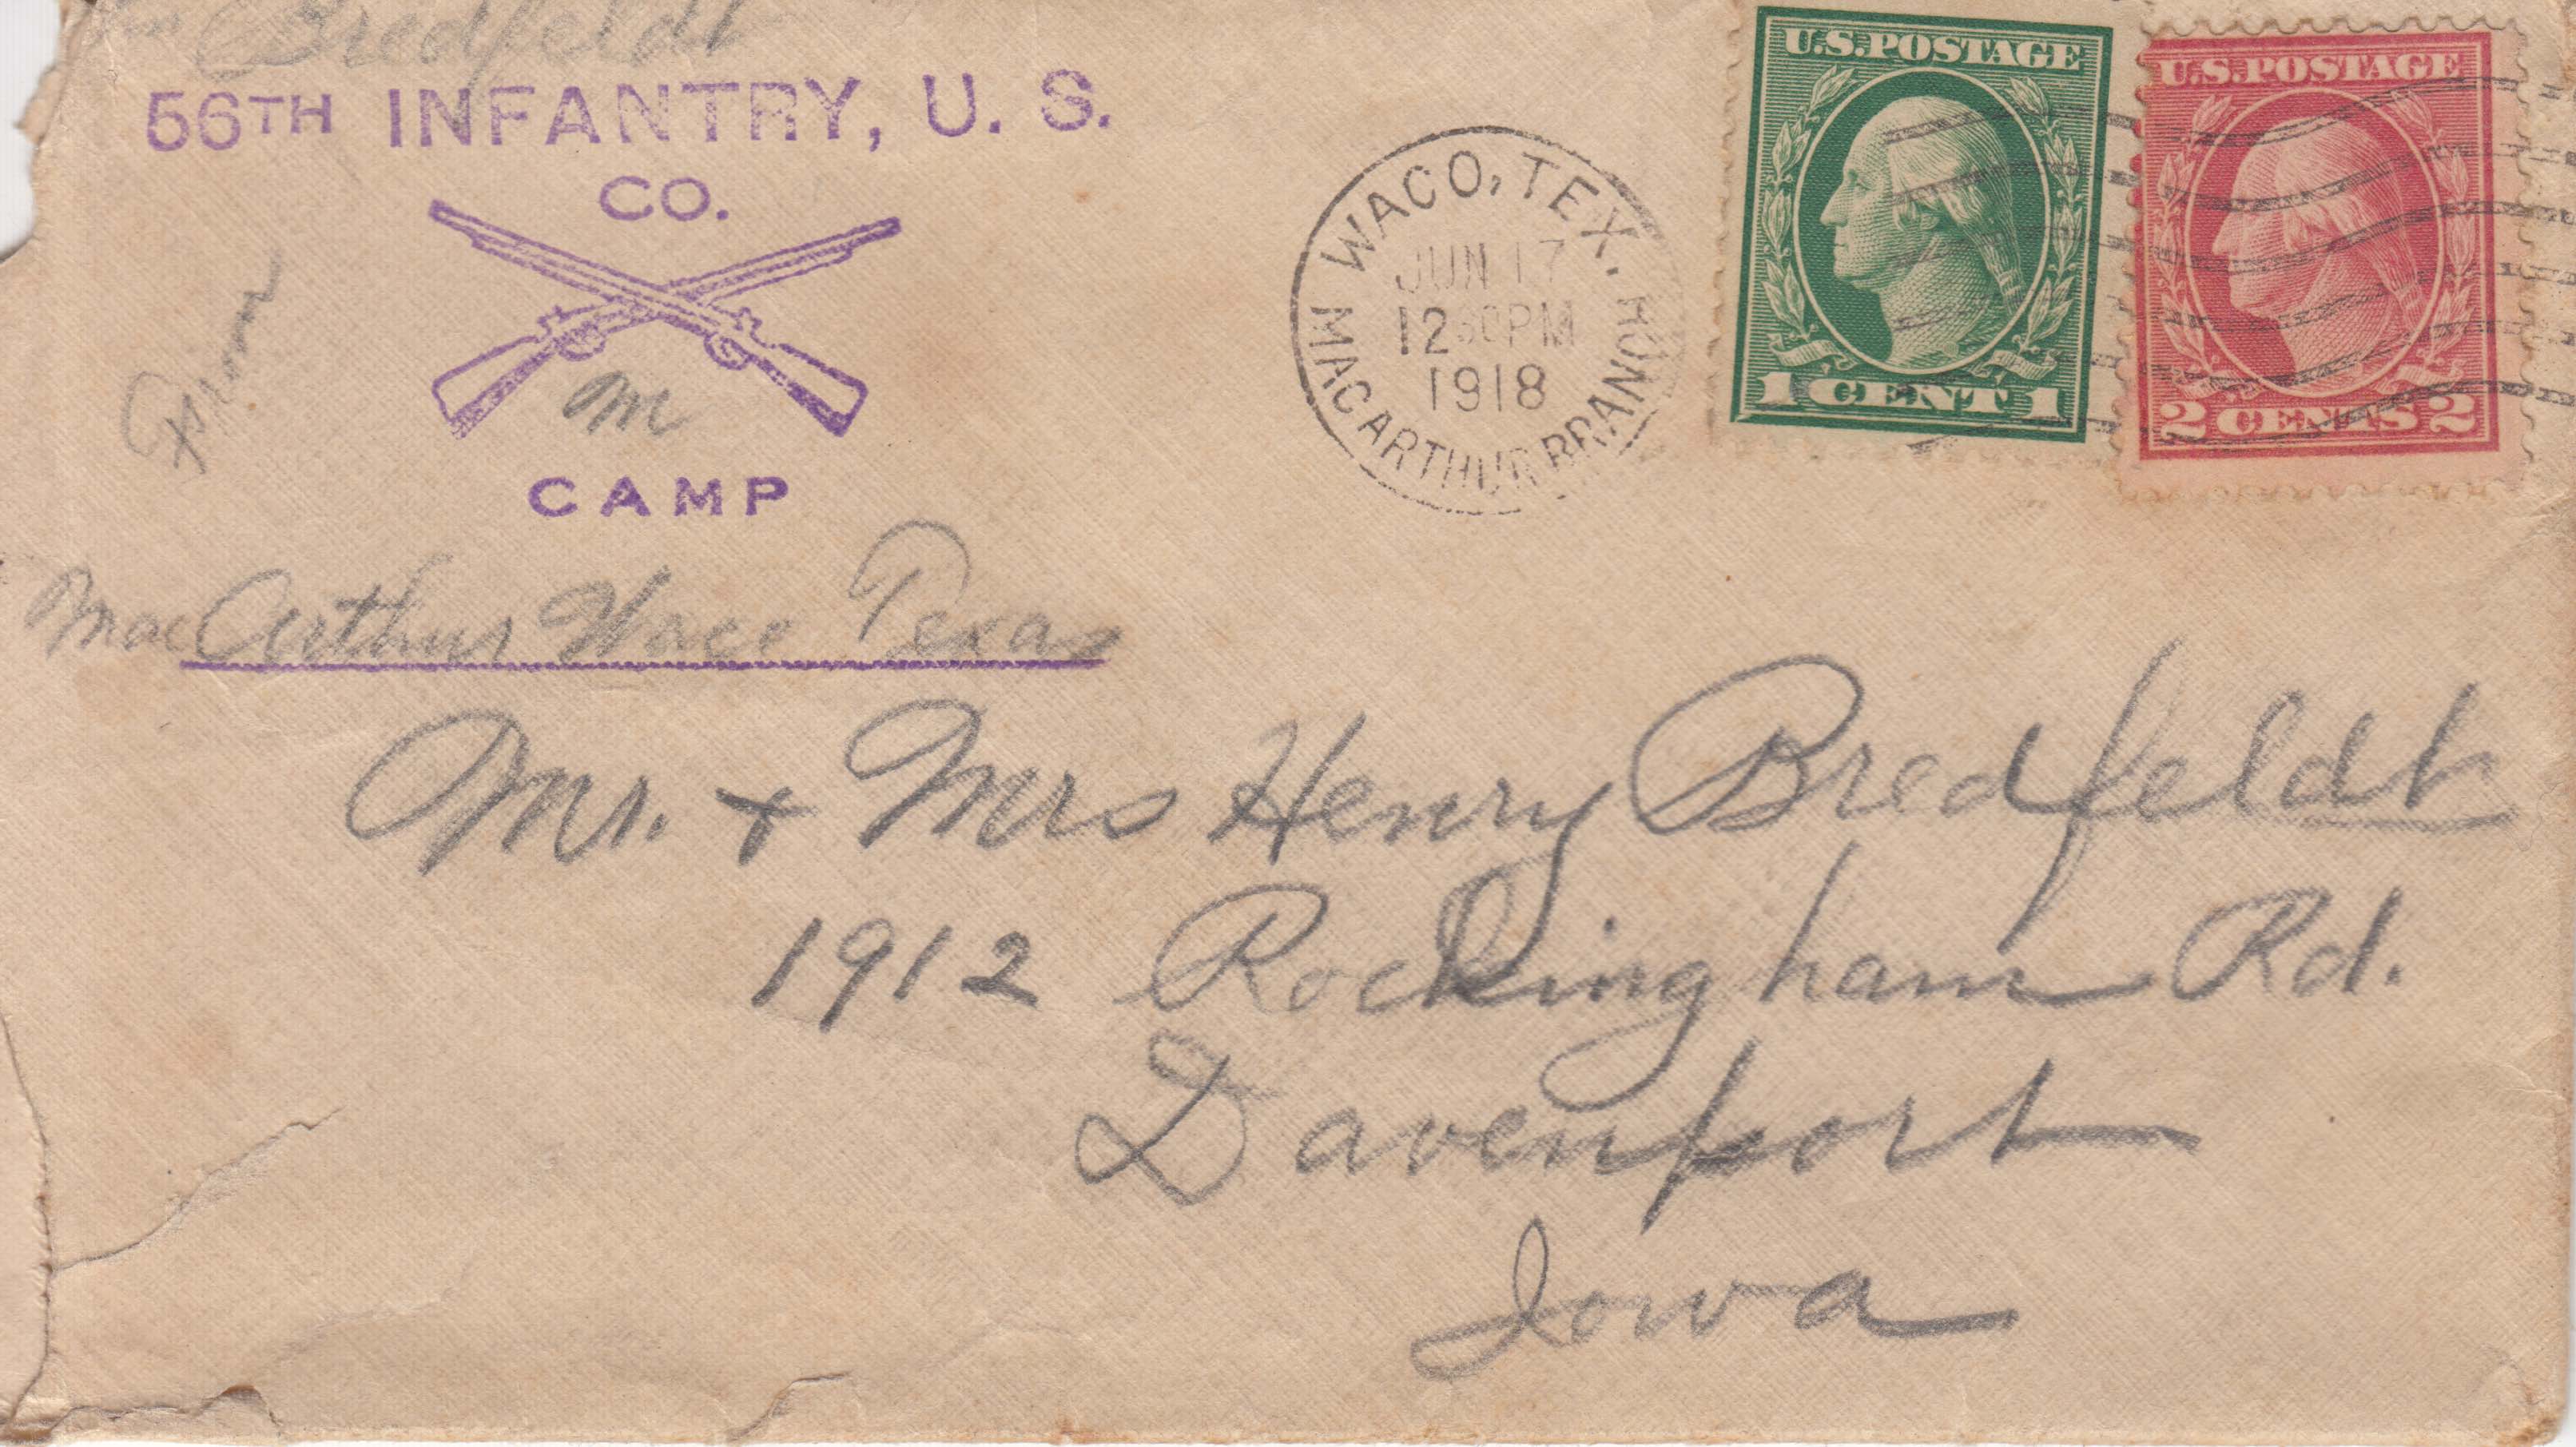 Bredfeldt
56TH INFANTRY, U. S.
CO.
M
From
CAMP
MacArthur Waco Texas
WACO, TEX.
JUN 17
12 30 PM
1918
MACARTHUR BRANCH
U.S. POSTAGE
1 CENT 1
U.S. POSTAGE
2 CENTS 2
Mr. + Mrs Henry Bredfeldt
1912 Rockingham Rd.
Davenport
Iowa